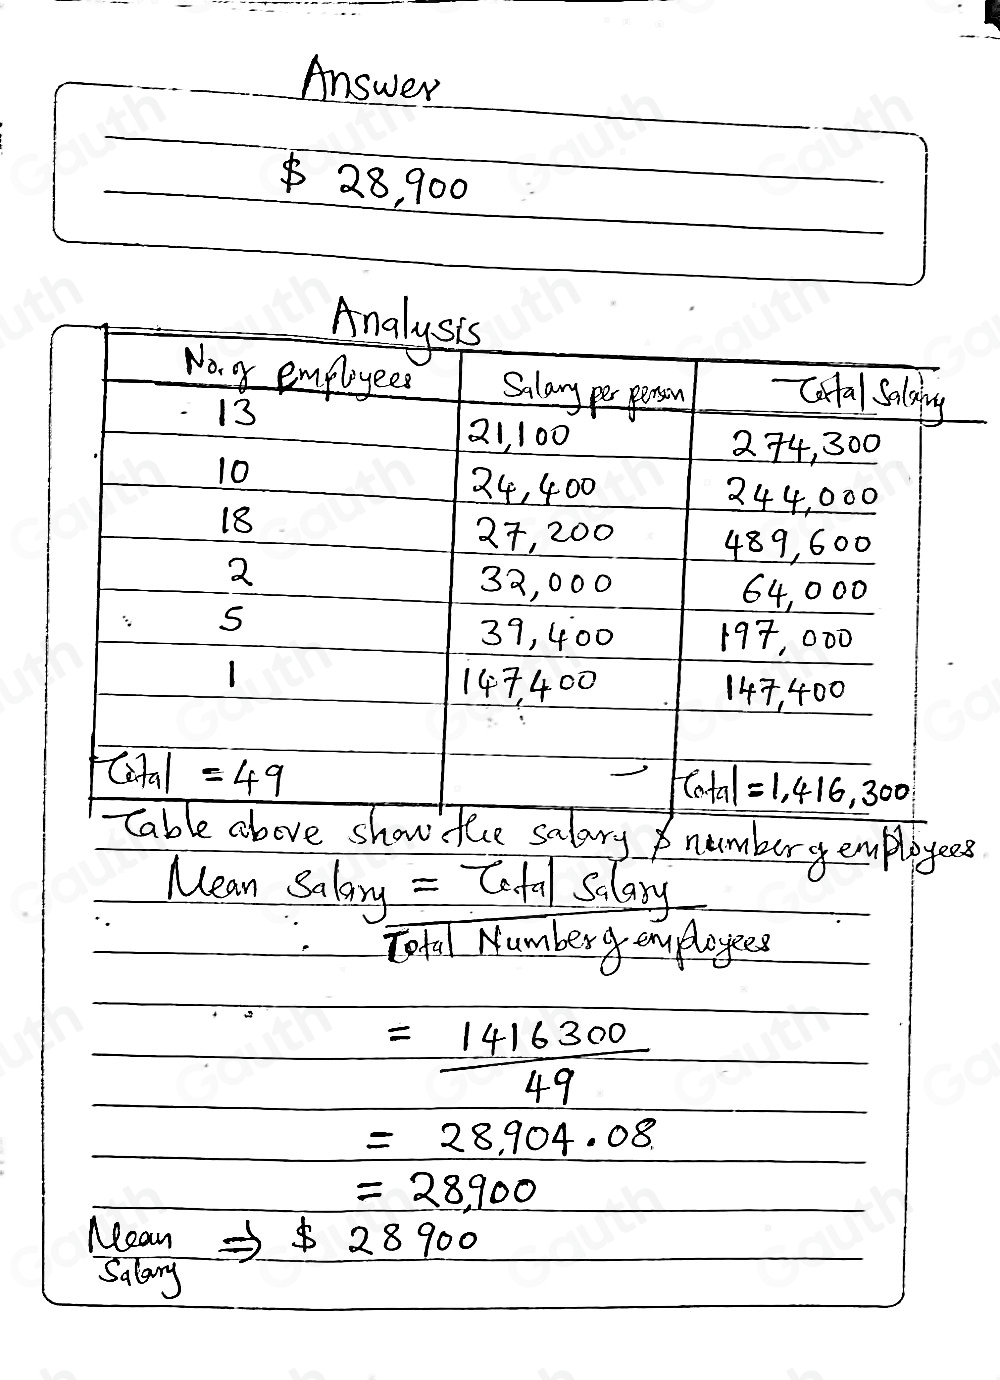 Answer
$ 28,900
Analysis
No. of employees Salary per person Total Salary
13 21,100 274,300
10 24,400 244,000
18 27,200 489,600
2 32,000 64,000
5 39,400 197,000
1 147,400 147,400
Total = 49 - Total = 1,416,300
Table above show the salary & number of employees
Mean Salary = Total Salary
Total Number of employees
= 1416300
49
= 28,904.08
= 28,900
Mean Salary ⇒ $ 28 900